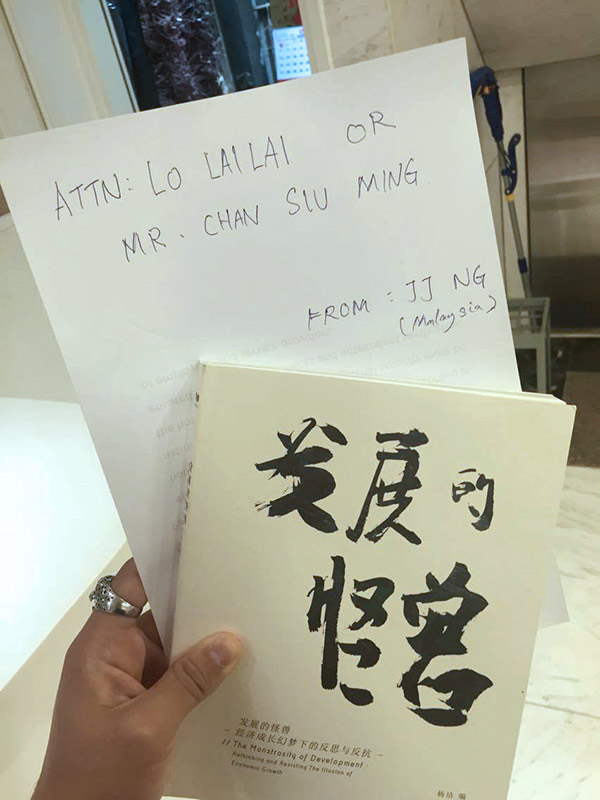 ATTN: LO LAI LAI OR
MR. CHAN SIU MING
FROM : JJ NG
(Malaysia)
发展的
怪兽
发展的怪兽
- 经济成长幻梦下的反思与反抗 -
// The Monstrosity of Development ·
Rethinking and Resisting The Illusion of
Economic Growth
杨洁 编